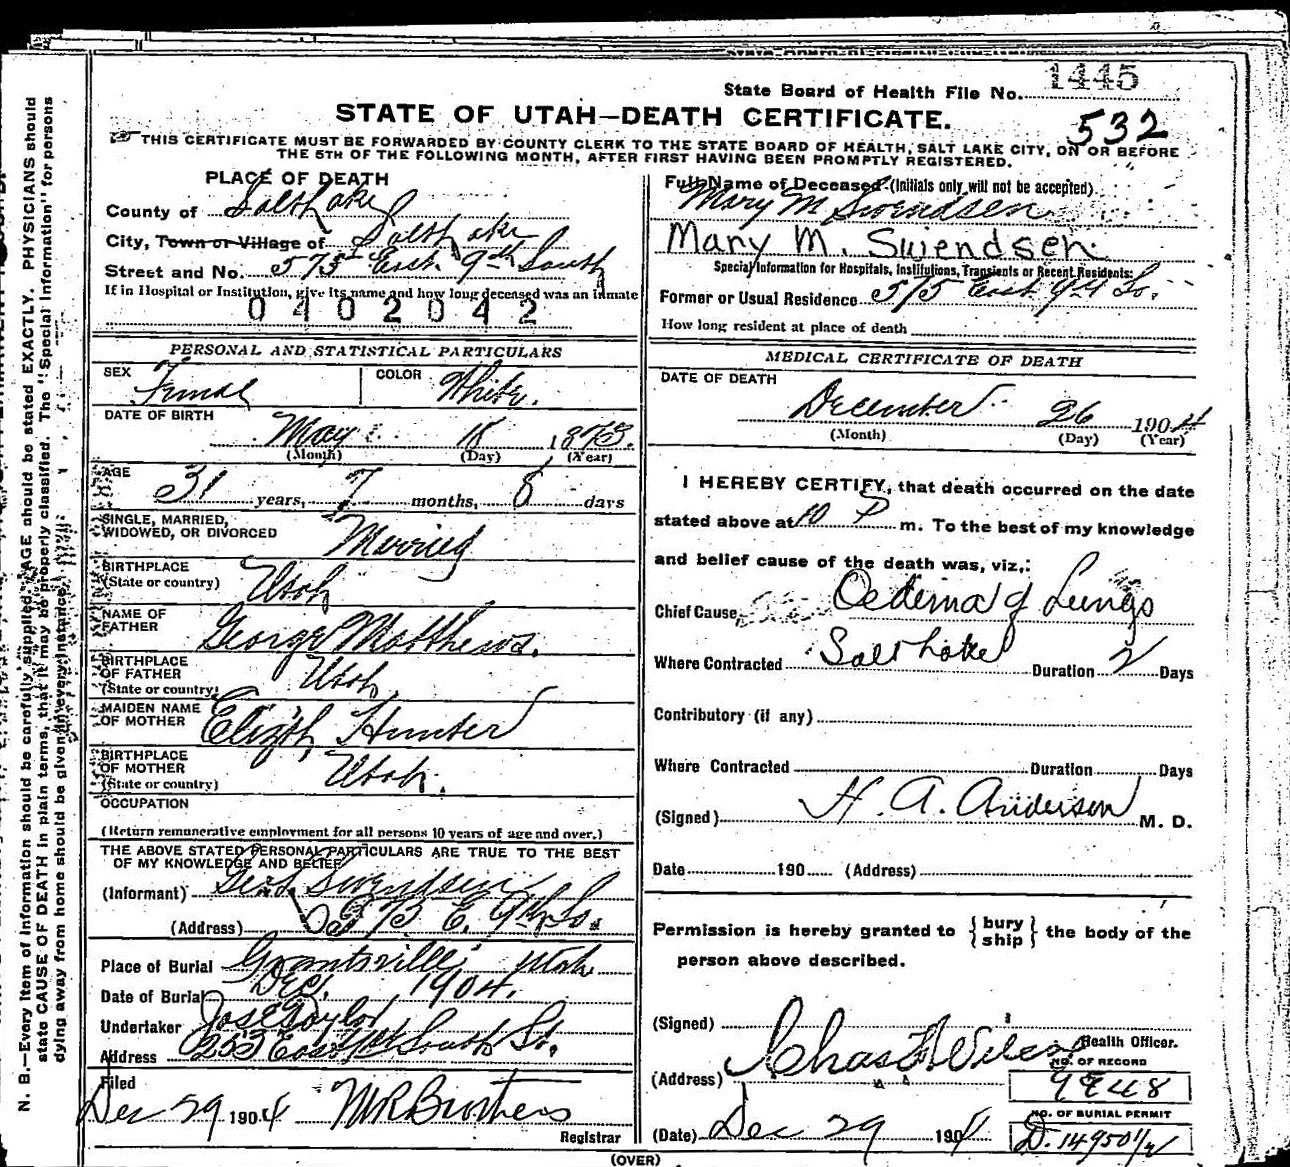 State Board of Health File No. 1445
STATE OF UTAH—DEATH CERTIFICATE.
532
THIS CERTIFICATE MUST BE FORWARDED BY COUNTY CLERK TO THE STATE BOARD OF HEALTH, SALT LAKE CITY, ON OR BEFORE
THE 5TH OF THE FOLLOWING MONTH, AFTER FIRST HAVING BEEN PROMPTLY REGISTERED.
PLACE OF DEATH
County of Salt Lake
City, Town or Village of Salt Lake
Street and No. 575 East 9th South
If in Hospital or Institution, give its name and how long deceased was an inmate
0402042
Full Name of Deceased (Initials only will not be accepted)
Mary M Swendsen
Mary M. Swendsen
Special Information for Hospitals, Institutions, Transients or Recent Residents:
Former or Usual Residence 575 East 9th So.
How long resident at place of death
PERSONAL AND STATISTICAL PARTICULARS
SEX Female COLOR White.
DATE OF BIRTH
May 18 1873.
(Month) (Day) (Year)
AGE
31 years, 7 months, 8 days
SINGLE, MARRIED,
WIDOWED, OR DIVORCED Married
BIRTHPLACE
(State or country) Utah
NAME OF
FATHER George Matthews.
BIRTHPLACE
OF FATHER
(State or country) Utah
MAIDEN NAME
OF MOTHER Elizth Hunter
BIRTHPLACE
OF MOTHER
(State or country) Utah.
OCCUPATION
(Return remunerative employment for all persons 10 years of age and over.)
THE ABOVE STATED PERSONAL PARTICULARS ARE TRUE TO THE BEST
OF MY KNOWLEDGE AND BELIEF
(Informant) Swendsen
(Address) 575 E. 9th So.
Place of Burial Grantsville Utah
Date of Burial Dec. 1904.
Undertaker Jos E Taylor
Address 253 East 1st South St.
Filed
Dec 29 1904
Registrar
MEDICAL CERTIFICATE OF DEATH
DATE OF DEATH
December 26 1904
(Month) (Day) (Year)
I HEREBY CERTIFY, that death occurred on the date
stated above at 10 P m. To the best of my knowledge
and belief cause of the death was, viz,:
Chief Cause Oedema of Lungs
Where Contracted Salt Lake Duration 2 Days
Contributory (if any)
Where Contracted Duration Days
(Signed) H. A. Anderson M. D.
Date 190 (Address)
Permission is hereby granted to { bury
ship } the body of the
person above described.
(Signed)
Health Officer.
(Address)
NO. OF RECORD
9848
(Date) Dec 29 1904
NO. OF BURIAL PERMIT
D. 14950 1/2
(OVER)
N. B.—Every item of information should be carefully supplied. AGE should be stated EXACTLY. PHYSICIANS should
state CAUSE OF DEATH in plain terms, that it may be properly classified. The "Special Information" for persons
dying away from home should be given in every instance.